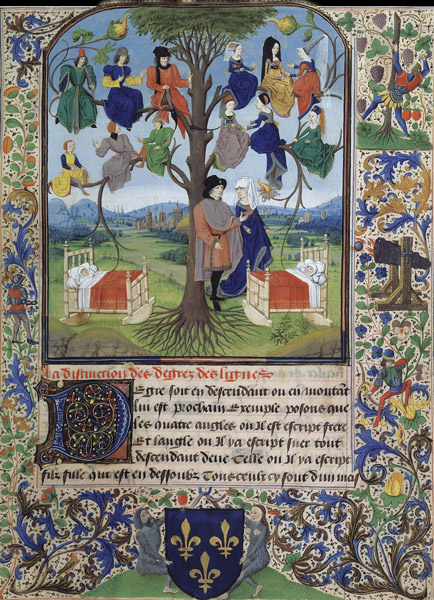 La distinction des degrez des lignes
Degre soit en descendant ou en montant
lui est prochain Exemple posons que
les quatre angles ou Il est escript frere
Et langle ou Il ya escript suer tout
descendant delle Telle ou Il ya escript
filz fille qui est en dessoubz Tous ceulx cy sont dun ma